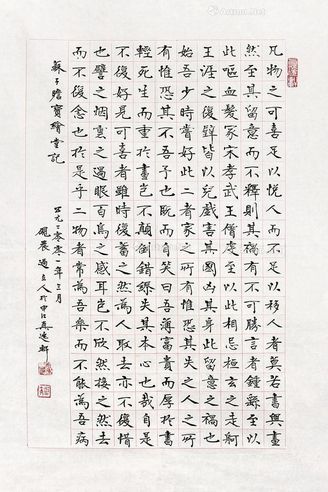 凡物之可喜足以悅人而不足以移人者莫若書與畫
然至其留意而不釋則其禍有不可勝言者鍾繇至以
此嘔血發冢宋孝武王僧虔至以此相忌桓玄之走舸
王涯之復壁皆以兒戲害其國凶其身此留意之禍也
始吾少時嘗好此二者家之所有惟恐其失之人之所
有惟恐其不吾予也既而自笑曰吾薄富貴而厚於書
輕死生而重於畫豈不顛倒錯繆失其本心也哉自是
不復好見可喜者雖時復蓄之然為人取去亦不復惜
也譬之煙雲之過眼百鳥之感耳豈不欣然接之然去
而不復念也於是乎二物者常為吾樂而不能為吾病
蘇子瞻寶繪堂記